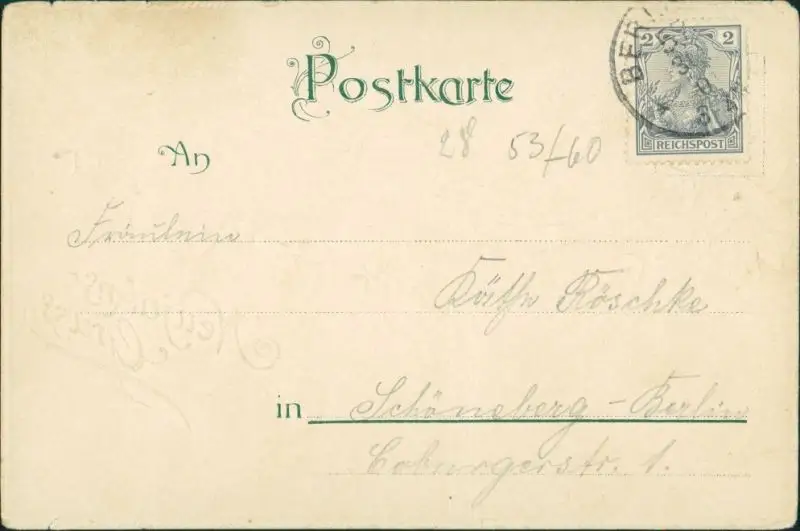 Postkarte
2 2
REICHSPOST
BERLIN
An
28 53/60
Fräulein
Käthe Röschke
in Schöneberg - Berlin
Coburgerstr. 1.